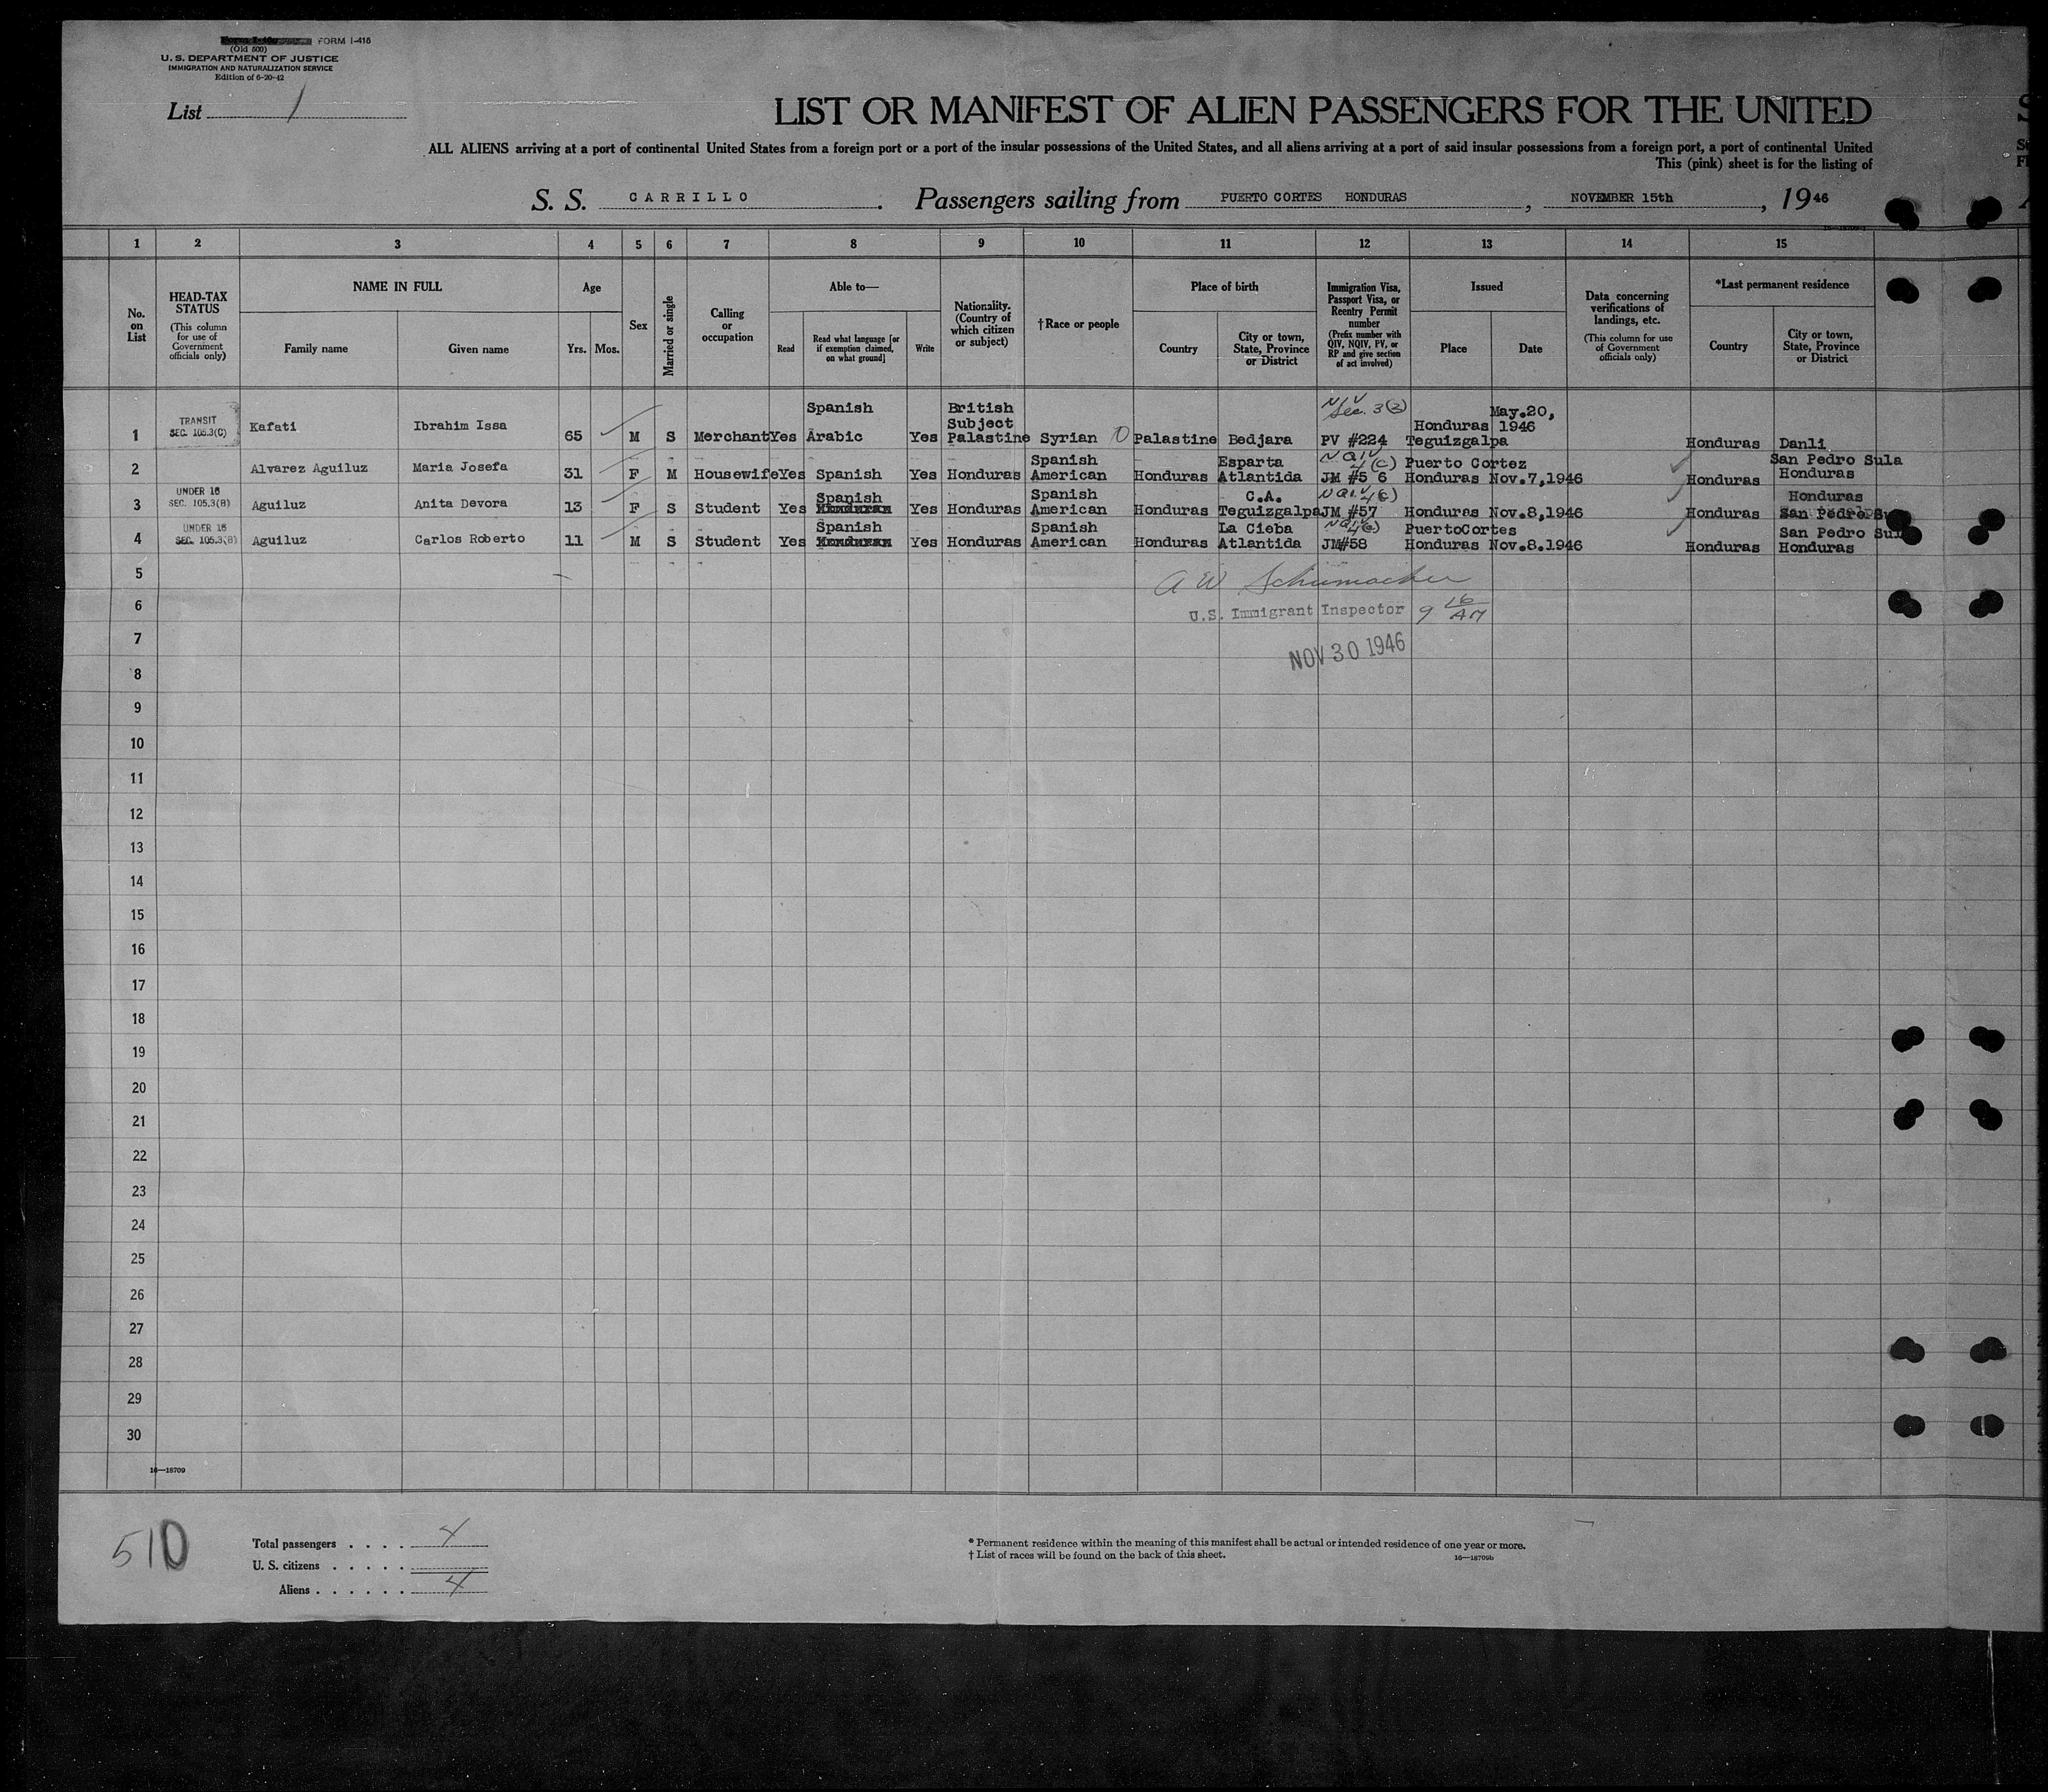 FORM I-415
(Old 500)
U. S. DEPARTMENT OF JUSTICE
IMMIGRATION AND NATURALIZATION SERVICE
Edition of 6-20-42
List 1
LIST OR MANIFEST OF ALIEN PASSENGERS FOR THE UNITED
ALL ALIENS arriving at a port of continental United States from a foreign port or a port of the insular possessions of the United States, and all aliens arriving at a port of said insular possessions from a foreign port, a port of continental United
This (pink) sheet is for the listing of
S. S. CARRILLO. Passengers sailing from PUERTO CORTES HONDURAS, NOVEMBER 15th, 1946
1 2 3 4 5 6 7 8 9 10 11 12 13 14 15
No. on List
HEAD-TAX STATUS
(This column for use of Government officials only)
NAME IN FULL
Family name
Given name
Age
Yrs. Mos.
Sex
Married or single
Calling or occupation
Able to—
Read
Read what language [or if exemption claimed, on what ground]
Write
Nationality. (Country of which citizen or subject)
†Race or people
Place of birth
Country
City or town, State, Province or District
Immigration Visa, Passport Visa, or Reentry Permit number
(Prefix number with QIV, NQIV, PV, or RP and give section of act involved)
Issued
Place
Date
Data concerning verifications of landings, etc.
(This column for use of Government officials only)
*Last permanent residence
Country
City or town, State, Province or District
1 TRANSIT SEC. 105.3(C) Kafati Ibrahim Issa 65 M S Merchant Yes Spanish Arabic Yes British Subject Palastine Syrian Palastine Bedjara Sec. 3(3) PV #224 Honduras Teguizgalpa May.20, 1946 Honduras Danli
2 Alvarez Aguiluz Maria Josefa 31 F M Housewife Yes Spanish Yes Honduras Spanish American Honduras Esparta Atlantida NQIV 4(C) JM #5 6 Puerto Cortez Honduras Nov.7,1946 Honduras San Pedro Sula Honduras
3 UNDER 16 SEC. 105.3(B) Aguiluz Anita Devora 13 F S Student Yes Spanish Honduran Yes Honduras Spanish American Honduras C.A. Teguizgalpa NQIV 4(c) JM #57 Honduras Nov.8,1946 Honduras Honduras San Pedro Su
4 UNDER 16 SEC. 105.3(B) Aguiluz Carlos Roberto 11 M S Student Yes Spanish Honduran Yes Honduras Spanish American Honduras La Cieba Atlantida NQIV 4(c) JM#58 PuertoCortes Honduras Nov.8.1946 Honduras San Pedro Sul Honduras
5
A W Schumacher
6
U.S. Immigrant Inspector 9 16/47
7
NOV 30 1946
8
9
10
11
12
13
14
15
16
17
18
19
20
21
22
23
24
25
26
27
28
29
30
16—18709
510
Total passengers . . . . 4
U. S. citizens . . . . .
Aliens . . . . . . 4
* Permanent residence within the meaning of this manifest shall be actual or intended residence of one year or more.
† List of races will be found on the back of this sheet.
16—18709b